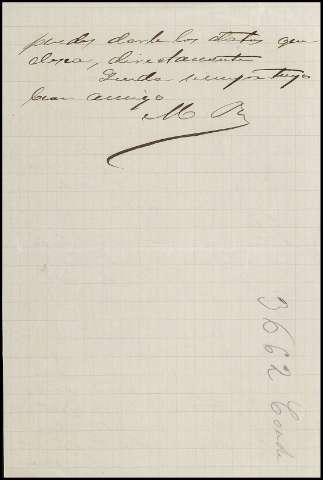 puedas darle los datos que
desea, directamente
Queda siempre tuyo
buen amigo
M
3662 Conde